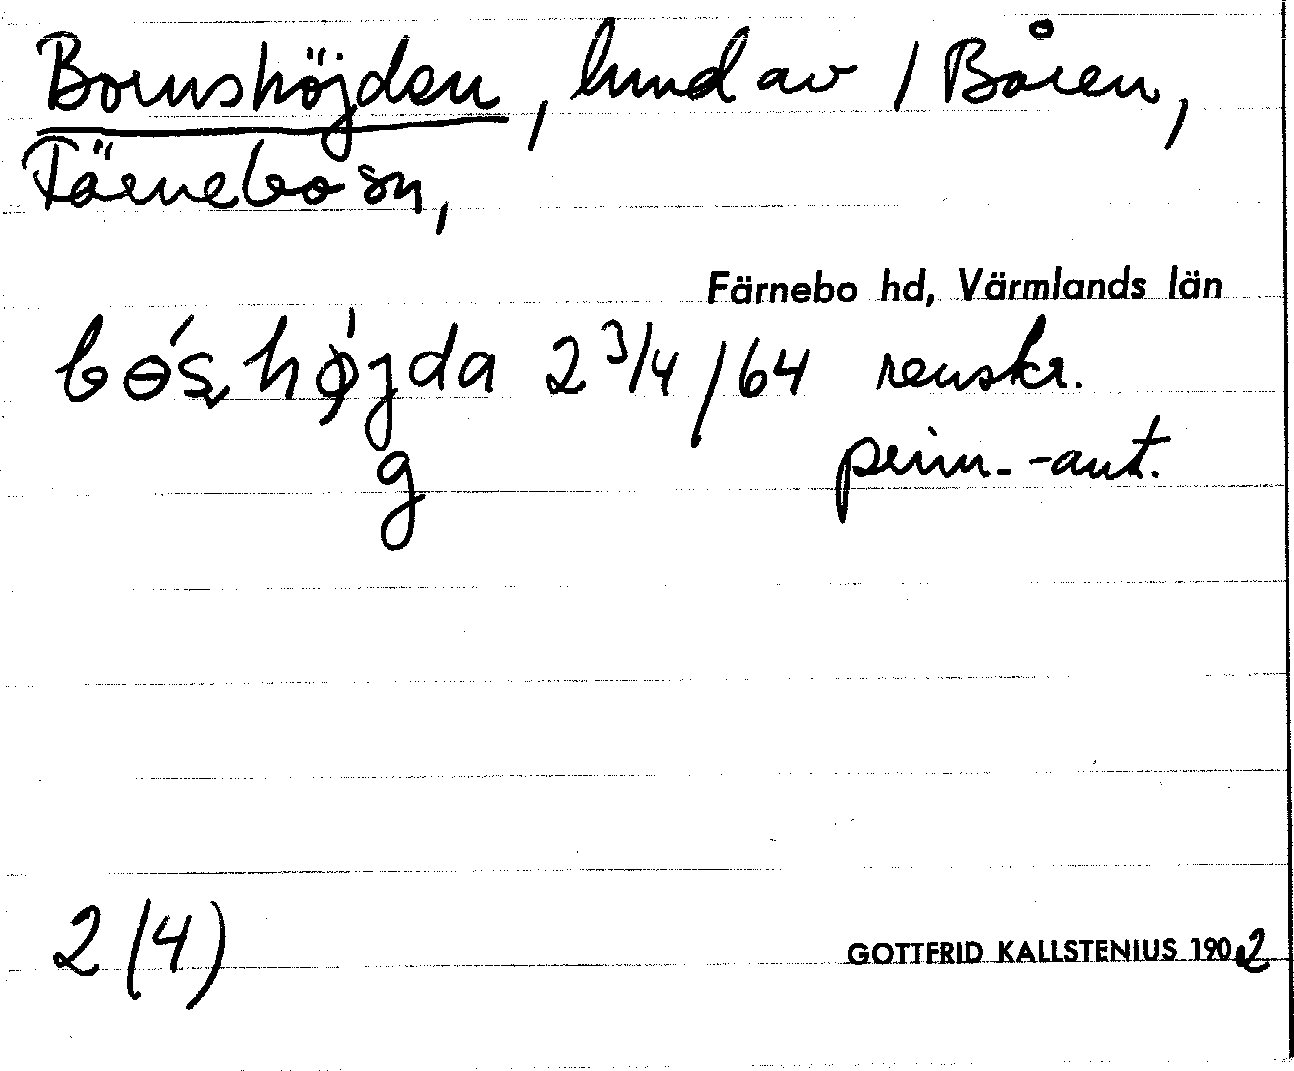 Bornshöjden, hmd av 1 Båren,
Färnebo sn,
Färnebo hd, Värmlands län
bɵ́s, hø̀jda 2 3/4/64 renskr.
g prim.-ant.
2 (4) GOTTFRID KALLSTENIUS 1902